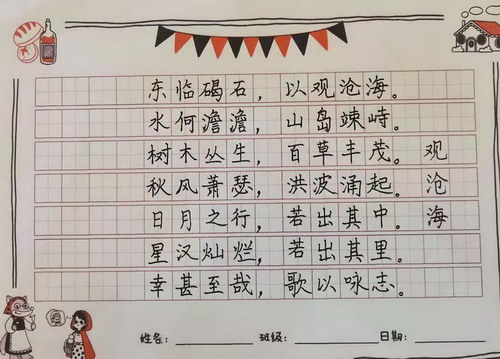 东临碣石，以观沧海。
水何澹澹，山岛竦峙。
树木丛生，百草丰茂。
秋风萧瑟，洪波涌起。
日月之行，若出其中。
星汉灿烂，若出其里。
幸甚至哉，歌以咏志。
观沧海
姓名：
班级：
日期：